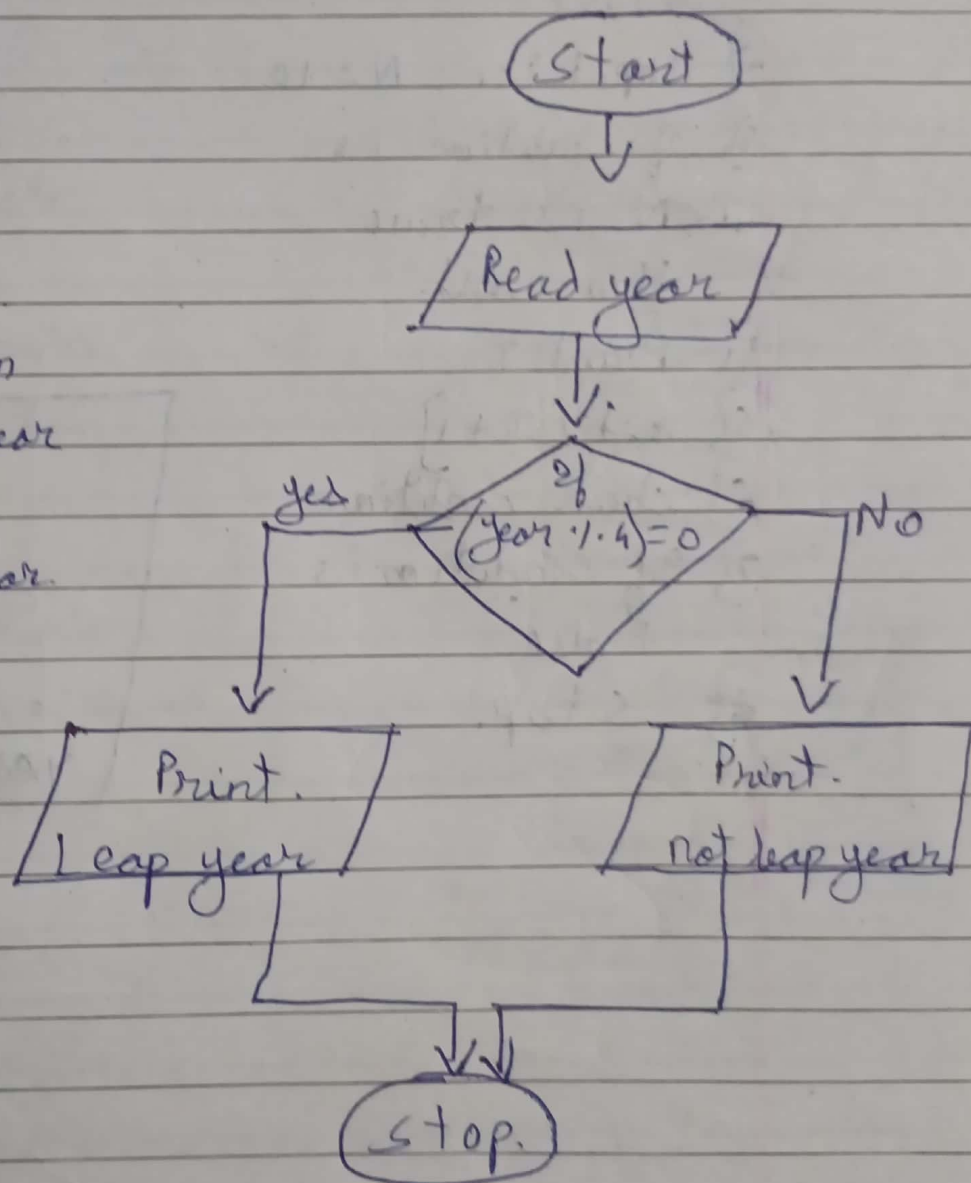 Start
Read year
ear
ar.
yes
If
(year % 4) = 0
No
Print.
Leap year
Print.
not leap year
Stop.